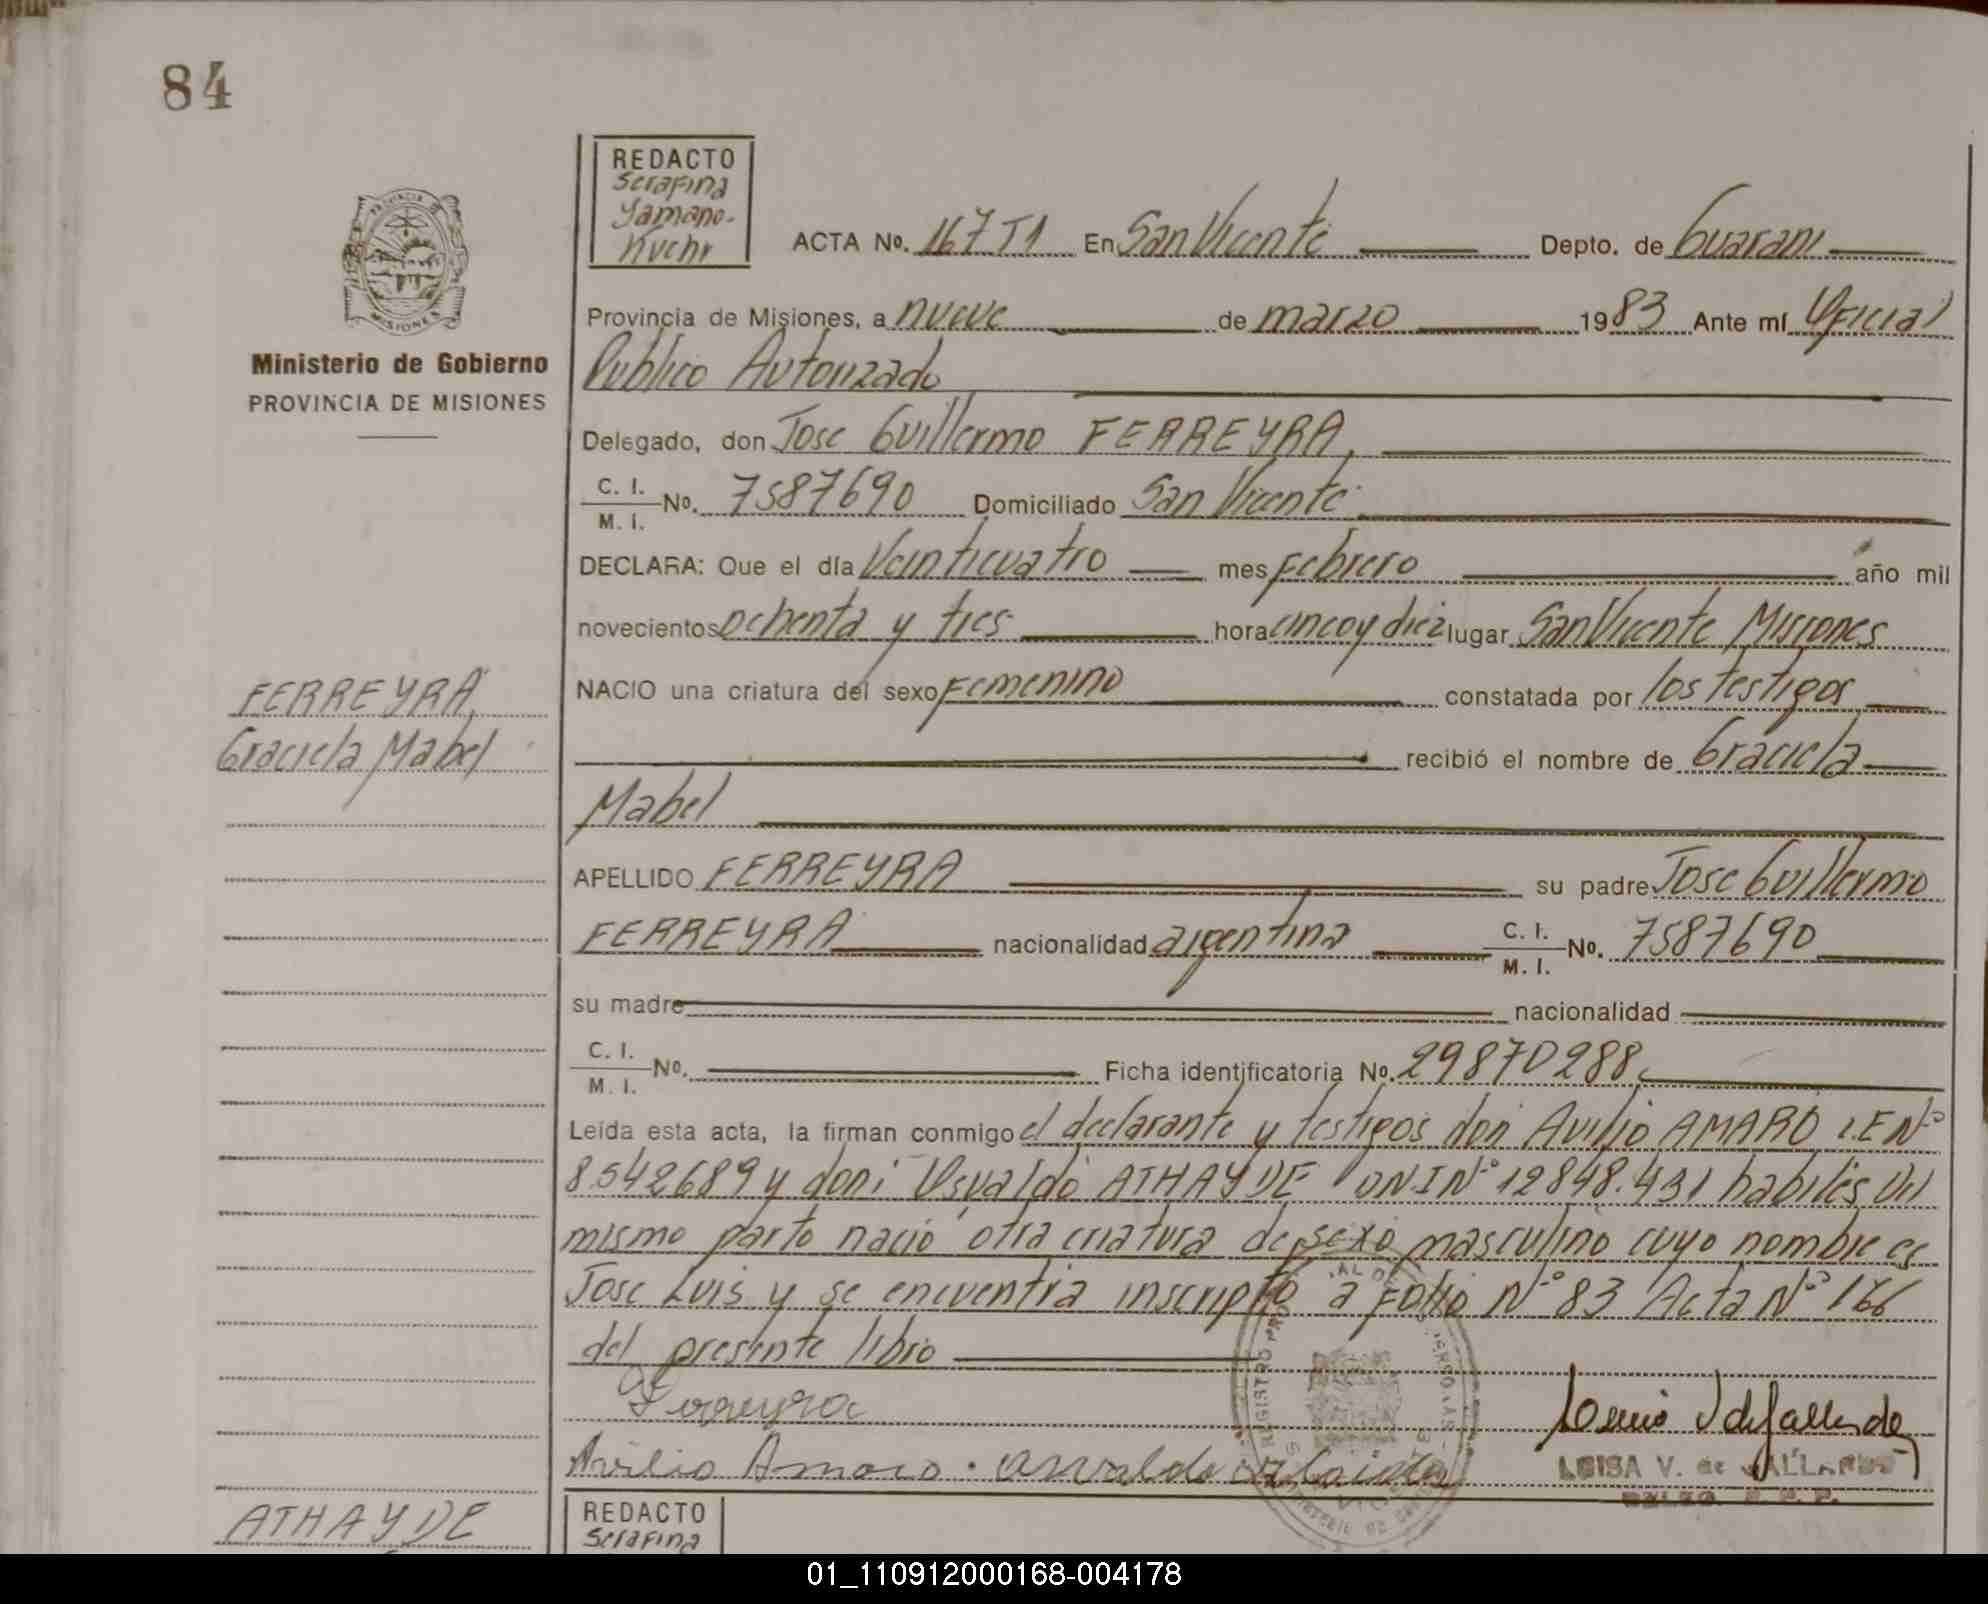 84
REDACTO
Serafina
Yamano-
Kuchr
ACTA No. 167 T1 En San Vicente Depto. de Guarani
Provincia de Misiones, a nueve de marzo 1983 Ante mí Oficial
Publico Autorizado
Ministerio de Gobierno
PROVINCIA DE MISIONES
Delegado, don Jose Guillermo FERREYRA,
C. I. / M. I. No. 7587690 Domiciliado San Vicente
DECLARA: Que el día Veinticuatro mes Febrero año mil
novecientos ochenta y tres hora cinco y diez lugar San Vicente Misiones
NACIO una criatura del sexo Femenino constatada por los testigos
recibió el nombre de Graciela
Mabel
FERREYRA,
Graciela Mabel
APELLIDO FERREYRA su padre Jose Guillermo
FERREYRA nacionalidad argentina C. I. / M. I. No. 7587690
su madre nacionalidad
C. I. / M. I. No. Ficha identificatoria No. 29870288
Leída esta acta, la firman conmigo el declarante y testigos don Avilio AMARO L.E Nº
8.542689 y don: Osvaldo ATHAYDE DNI Nº 12848.431 habiles Del
mismo parto nació otra criatura de sexo masculino cuyo nombre es
Jose Luis y se encuentra inscripto a Folio Nº 83 Acta Nº 166
del presente libro
Ferreyra
Avilio Amaro . Osvaldo
LUISA V. de GALLARDO
ATHAYDE
REDACTO
Serafina
01_110912000168-004178